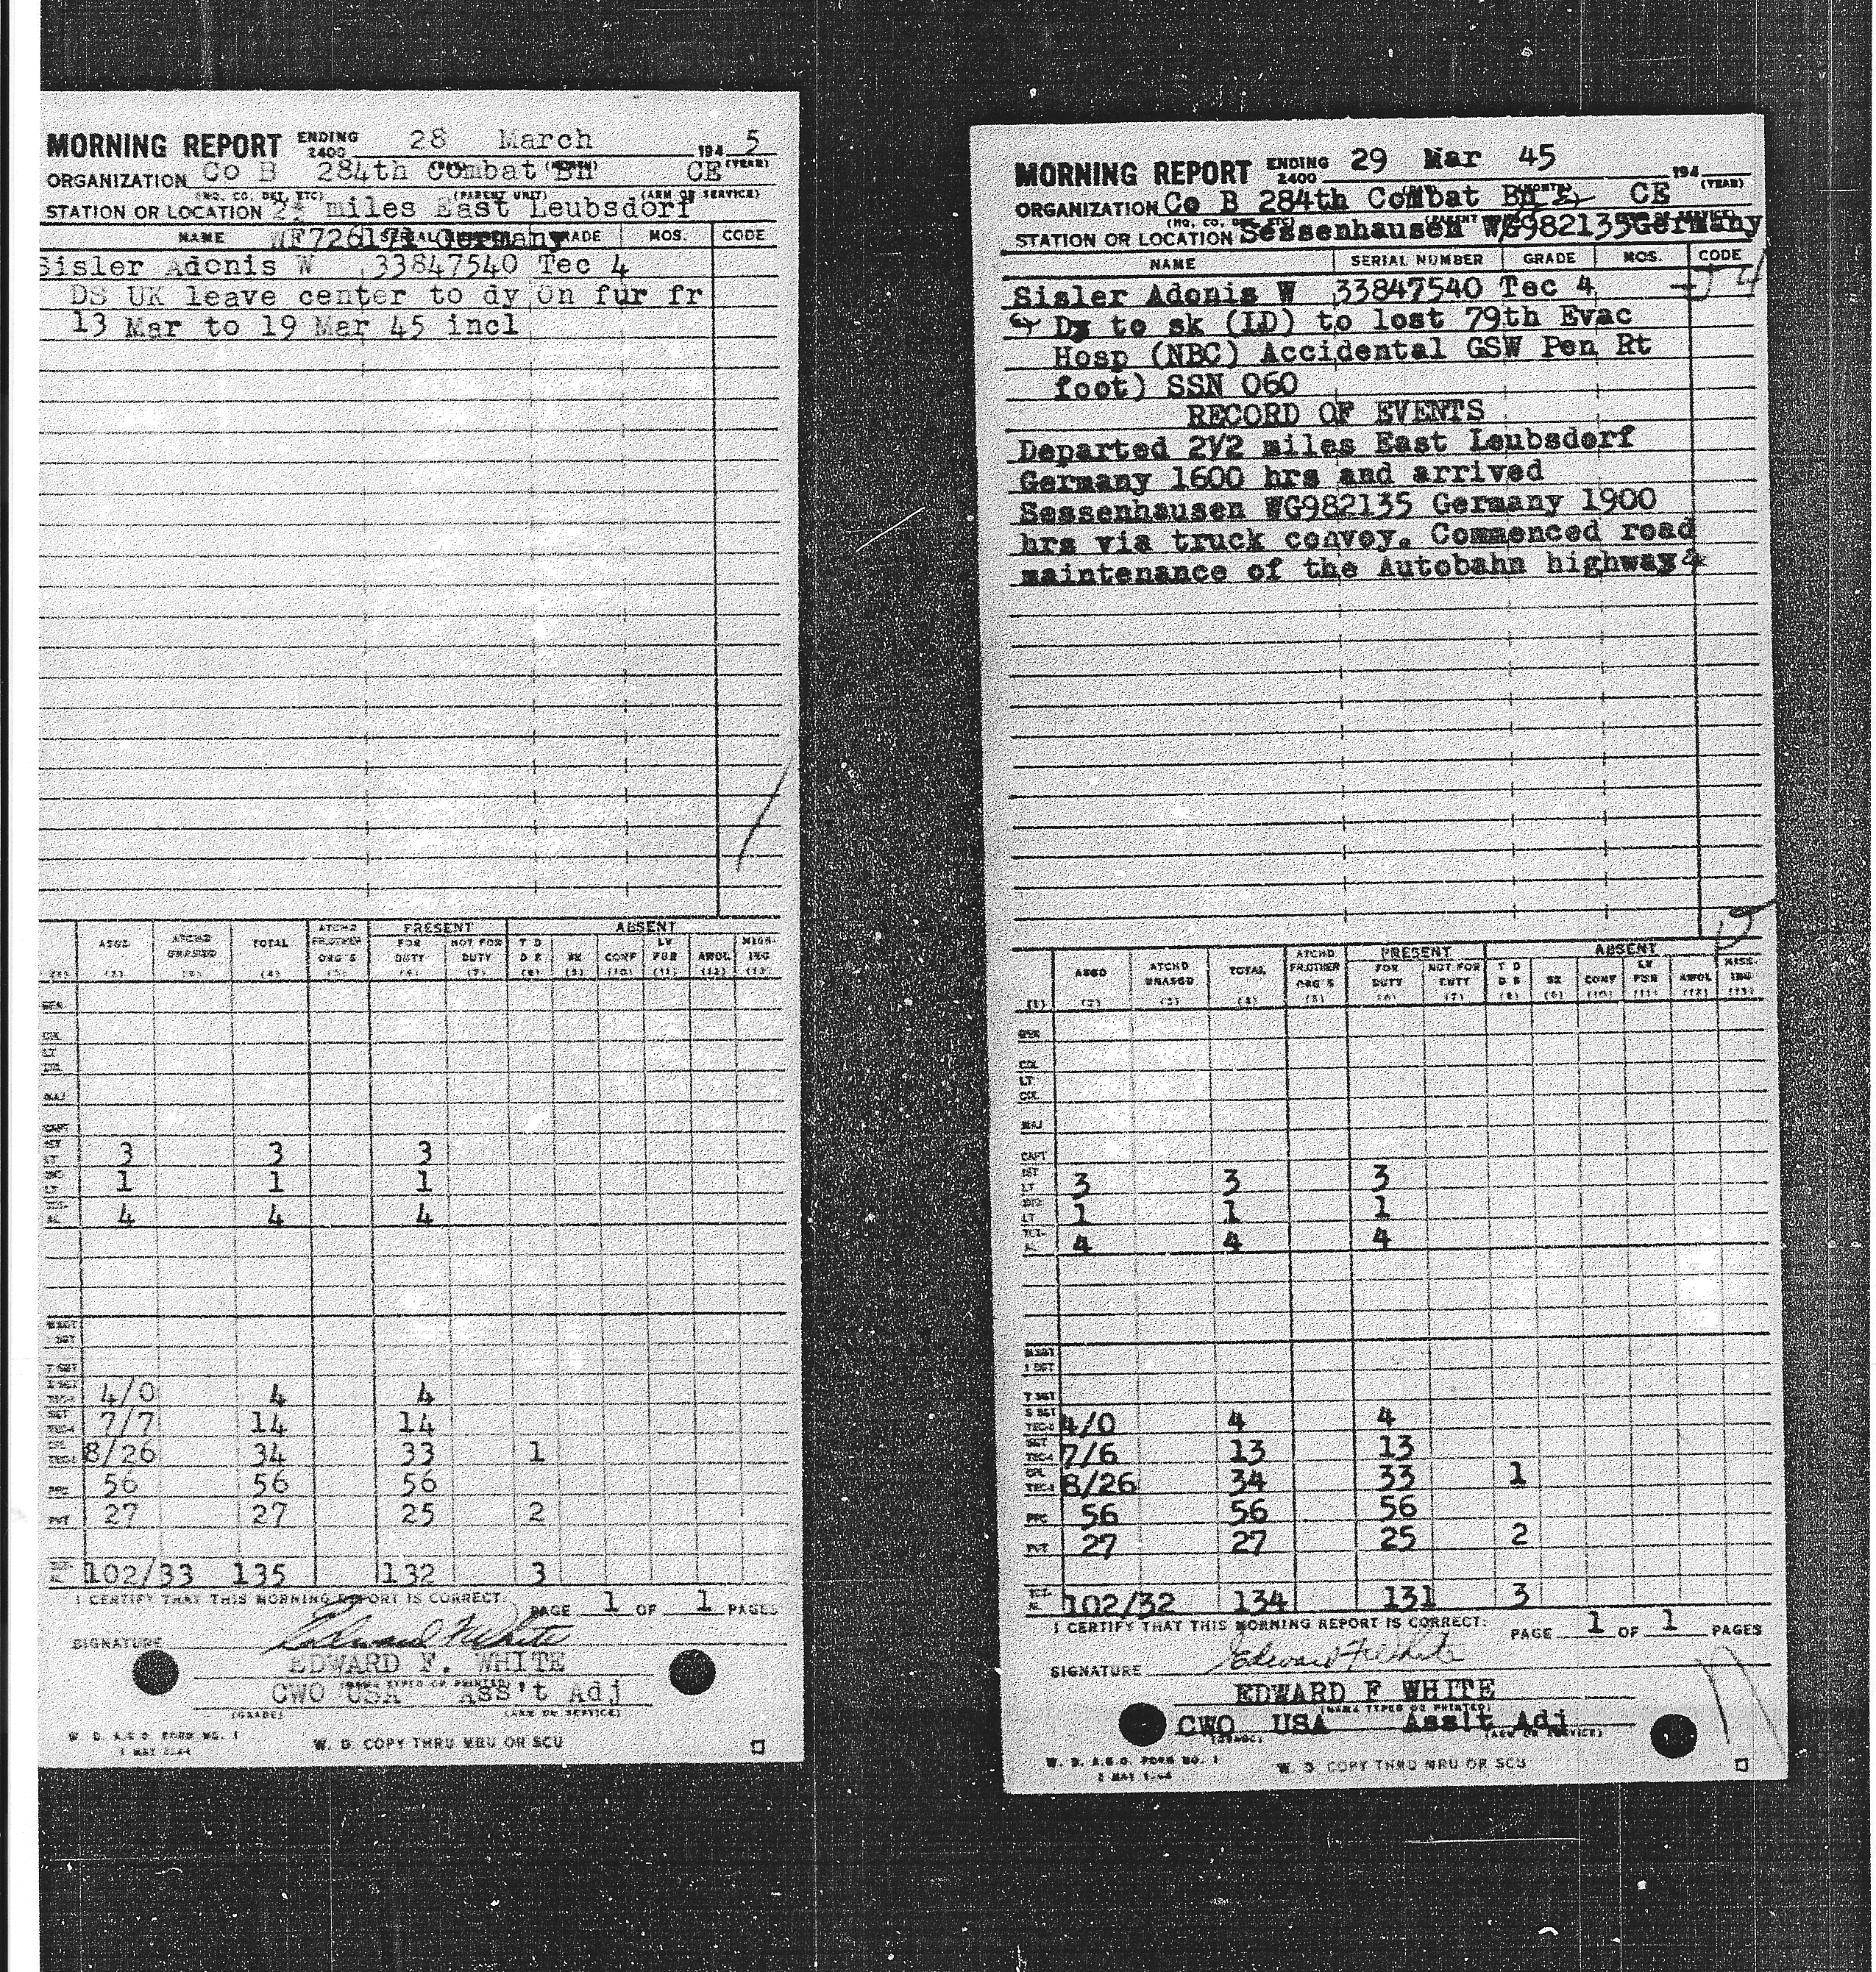 MORNING REPORT ENDING 2400 28 March 194 5
ORGANIZATION Co B 284th Combat Bn CE
(NO. CO. DET, ETC) (PARENT UNIT) (ARM OR SERVICE)
STATION OR LOCATION 2½ miles East Leubsdorf
WF726171 Germany
NAME SERIAL GRADE MOS. CODE
Sisler Adonis W 33847540 Tec 4
DS UK leave center to dy on fur fr
13 Mar to 19 Mar 45 incl
PRESENT ABSENT
ASGD ATCHD UNASGD TOTAL ATCHD FR.OTHER ORG'S FOR DUTY NOT FOR DUTY T D D S SK CONF LV FUR AWOL MISS-ING
(1) (2) (3) (4) (5) (6) (7) (8) (9) (10) (11) (12) (13)
GEN
COL
LT COL
MAJ
CAPT
3 3 3
1 1 1
4 4 4
T SGT
4/0 4 4
7/7 14 14
8/26 34 33 1
56 56 56
PVT 27 27 25 2
102/33 135 132 3
I CERTIFY THAT THIS MORNING REPORT IS CORRECT. PAGE 1 OF 1 PAGES
SIGNATURE Edward F White
EDWARD F. WHITE
(NAME TYPED OR PRINTED)
CWO USA Ass't Adj
(GRADE) (ARM OR SERVICE)
W. D. A.G.O. FORM NO. 1
1 MAY 1944
W. D. COPY THRU MRU OR SCU
MORNING REPORT ENDING 2400 29 Mar 45 194 (YEAR)
ORGANIZATION Co B 284th Combat Bn CE
STATION OR LOCATION Sessenhausen WG982135 Germany
NAME SERIAL NUMBER GRADE MOS. CODE
Sisler Adonis W 33847540 Tec 4
Dy to sk (LD) to lost 79th Evac
Hosp (NBC) Accidental GSW Pen Rt
foot) SSN 060
RECORD OF EVENTS
Departed 2½ miles East Leubsdorf
Germany 1600 hrs and arrived
Sessenhausen WG982135 Germany 1900
hrs via truck convoy. Commenced road
maintenance of the Autobahn highway.
PRESENT ABSENT
ASGD ATCHD UNASGD TOTAL ATCHD FR.OTHER ORG'S FOR DUTY NOT FOR DUTY T D D S SK CONF LV FUR AWOL MISS-ING
(1) (2) (3) (4) (5) (6) (7) (8) (9) (10) (11) (12) (13)
GEN
COL
LT COL
MAJ
CAPT
1ST LT 3 3 3
2ND LT 1 1 1
TOTAL 4 4 4
M SGT
1 SGT
T SGT
S SGT TEC-3 4/0 4 4
7/6 13 13
8/26 34 33 1
PFC 56 56 56
PVT 27 27 25 2
102/32 134 131 3
I CERTIFY THAT THIS MORNING REPORT IS CORRECT. PAGE 1 OF 1 PAGES
SIGNATURE Edward F White
EDWARD F WHITE
(NAME TYPED OR PRINTED)
CWO USA Ass't Adj
(GRADE) (ARM OR SERVICE)
W. D. A.G.O. FORM NO. 1
1 MAY 1944
W. D. COPY THRU MRU OR SCU